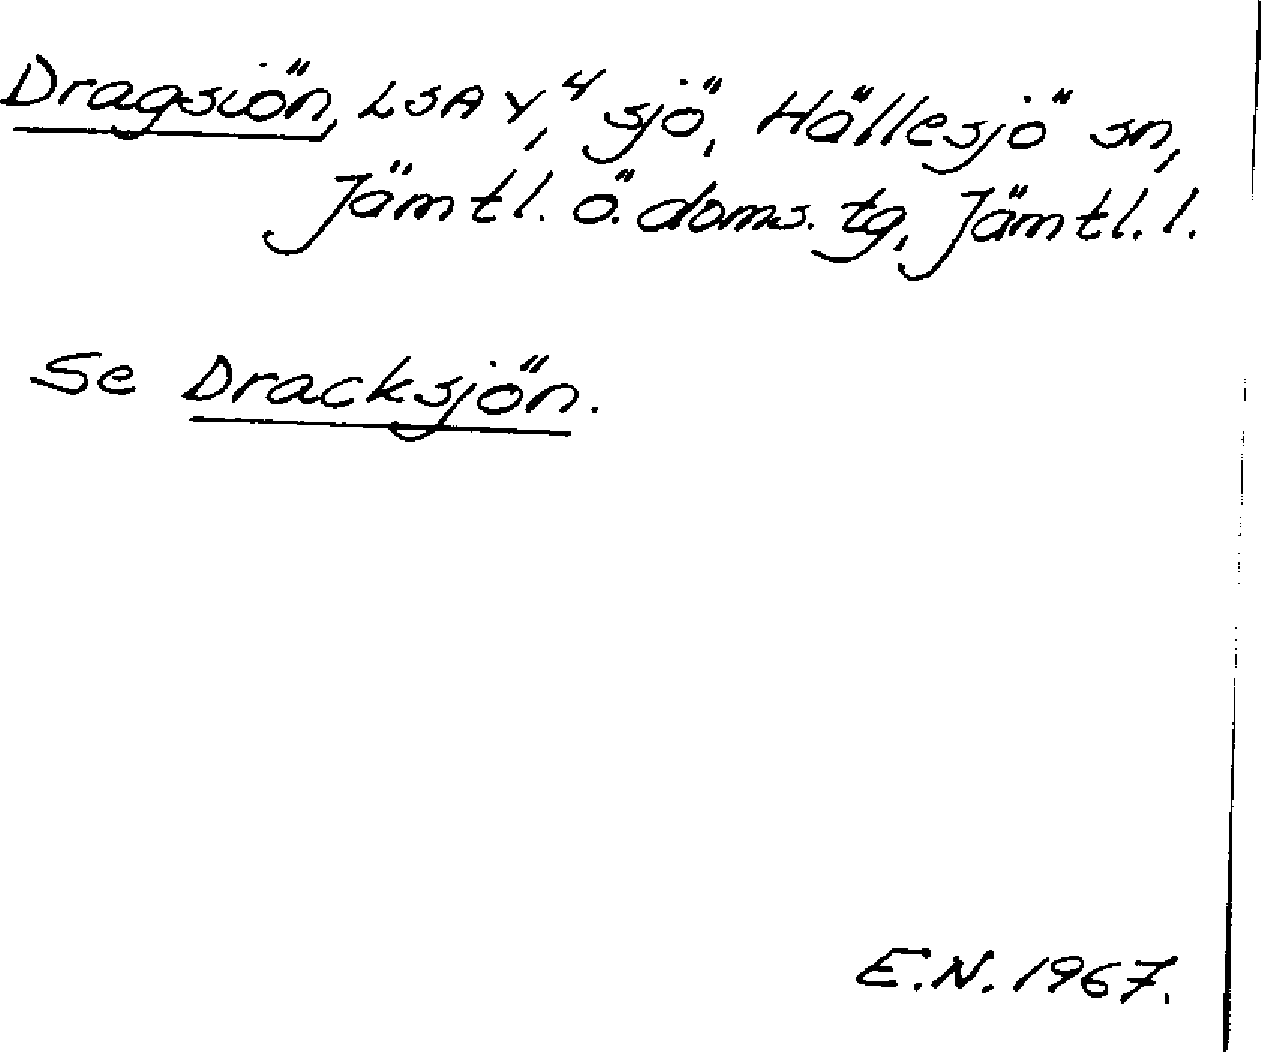 Dragsiön, LSA Y,4 sjö, Hällesjö sn,
Jämtl. ö. doms. tg, Jämtl. l.
Se Dracksjön.
E.N. 1967.